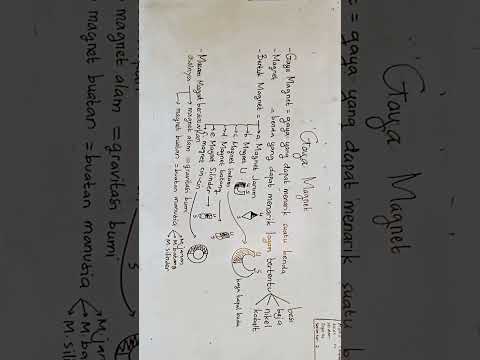 Gaya Magnet
- Gaya Magnet = gaya yang dapat menarik suatu benda
- Magnet = benda yang dapat menarik logam tertentu
besi
baja
nikel
kobalt
- Bentuk Magnet = a. Magnet Jarum
b. Magnet U
d. Magnet batang
e. Magnet Silinder
f. magnet cincin
U
S
- Macam Magnet berdasarkan
asalnya
magnet alam = gravitasi bumi
magnet buatan = buatan manusia
M. jarum
M batang
M silinder
Gaya Magnet
= gaya yang dapat menarik suatu b
magnet alam = gravitasi bumi
magnet buatan = buatan manusia